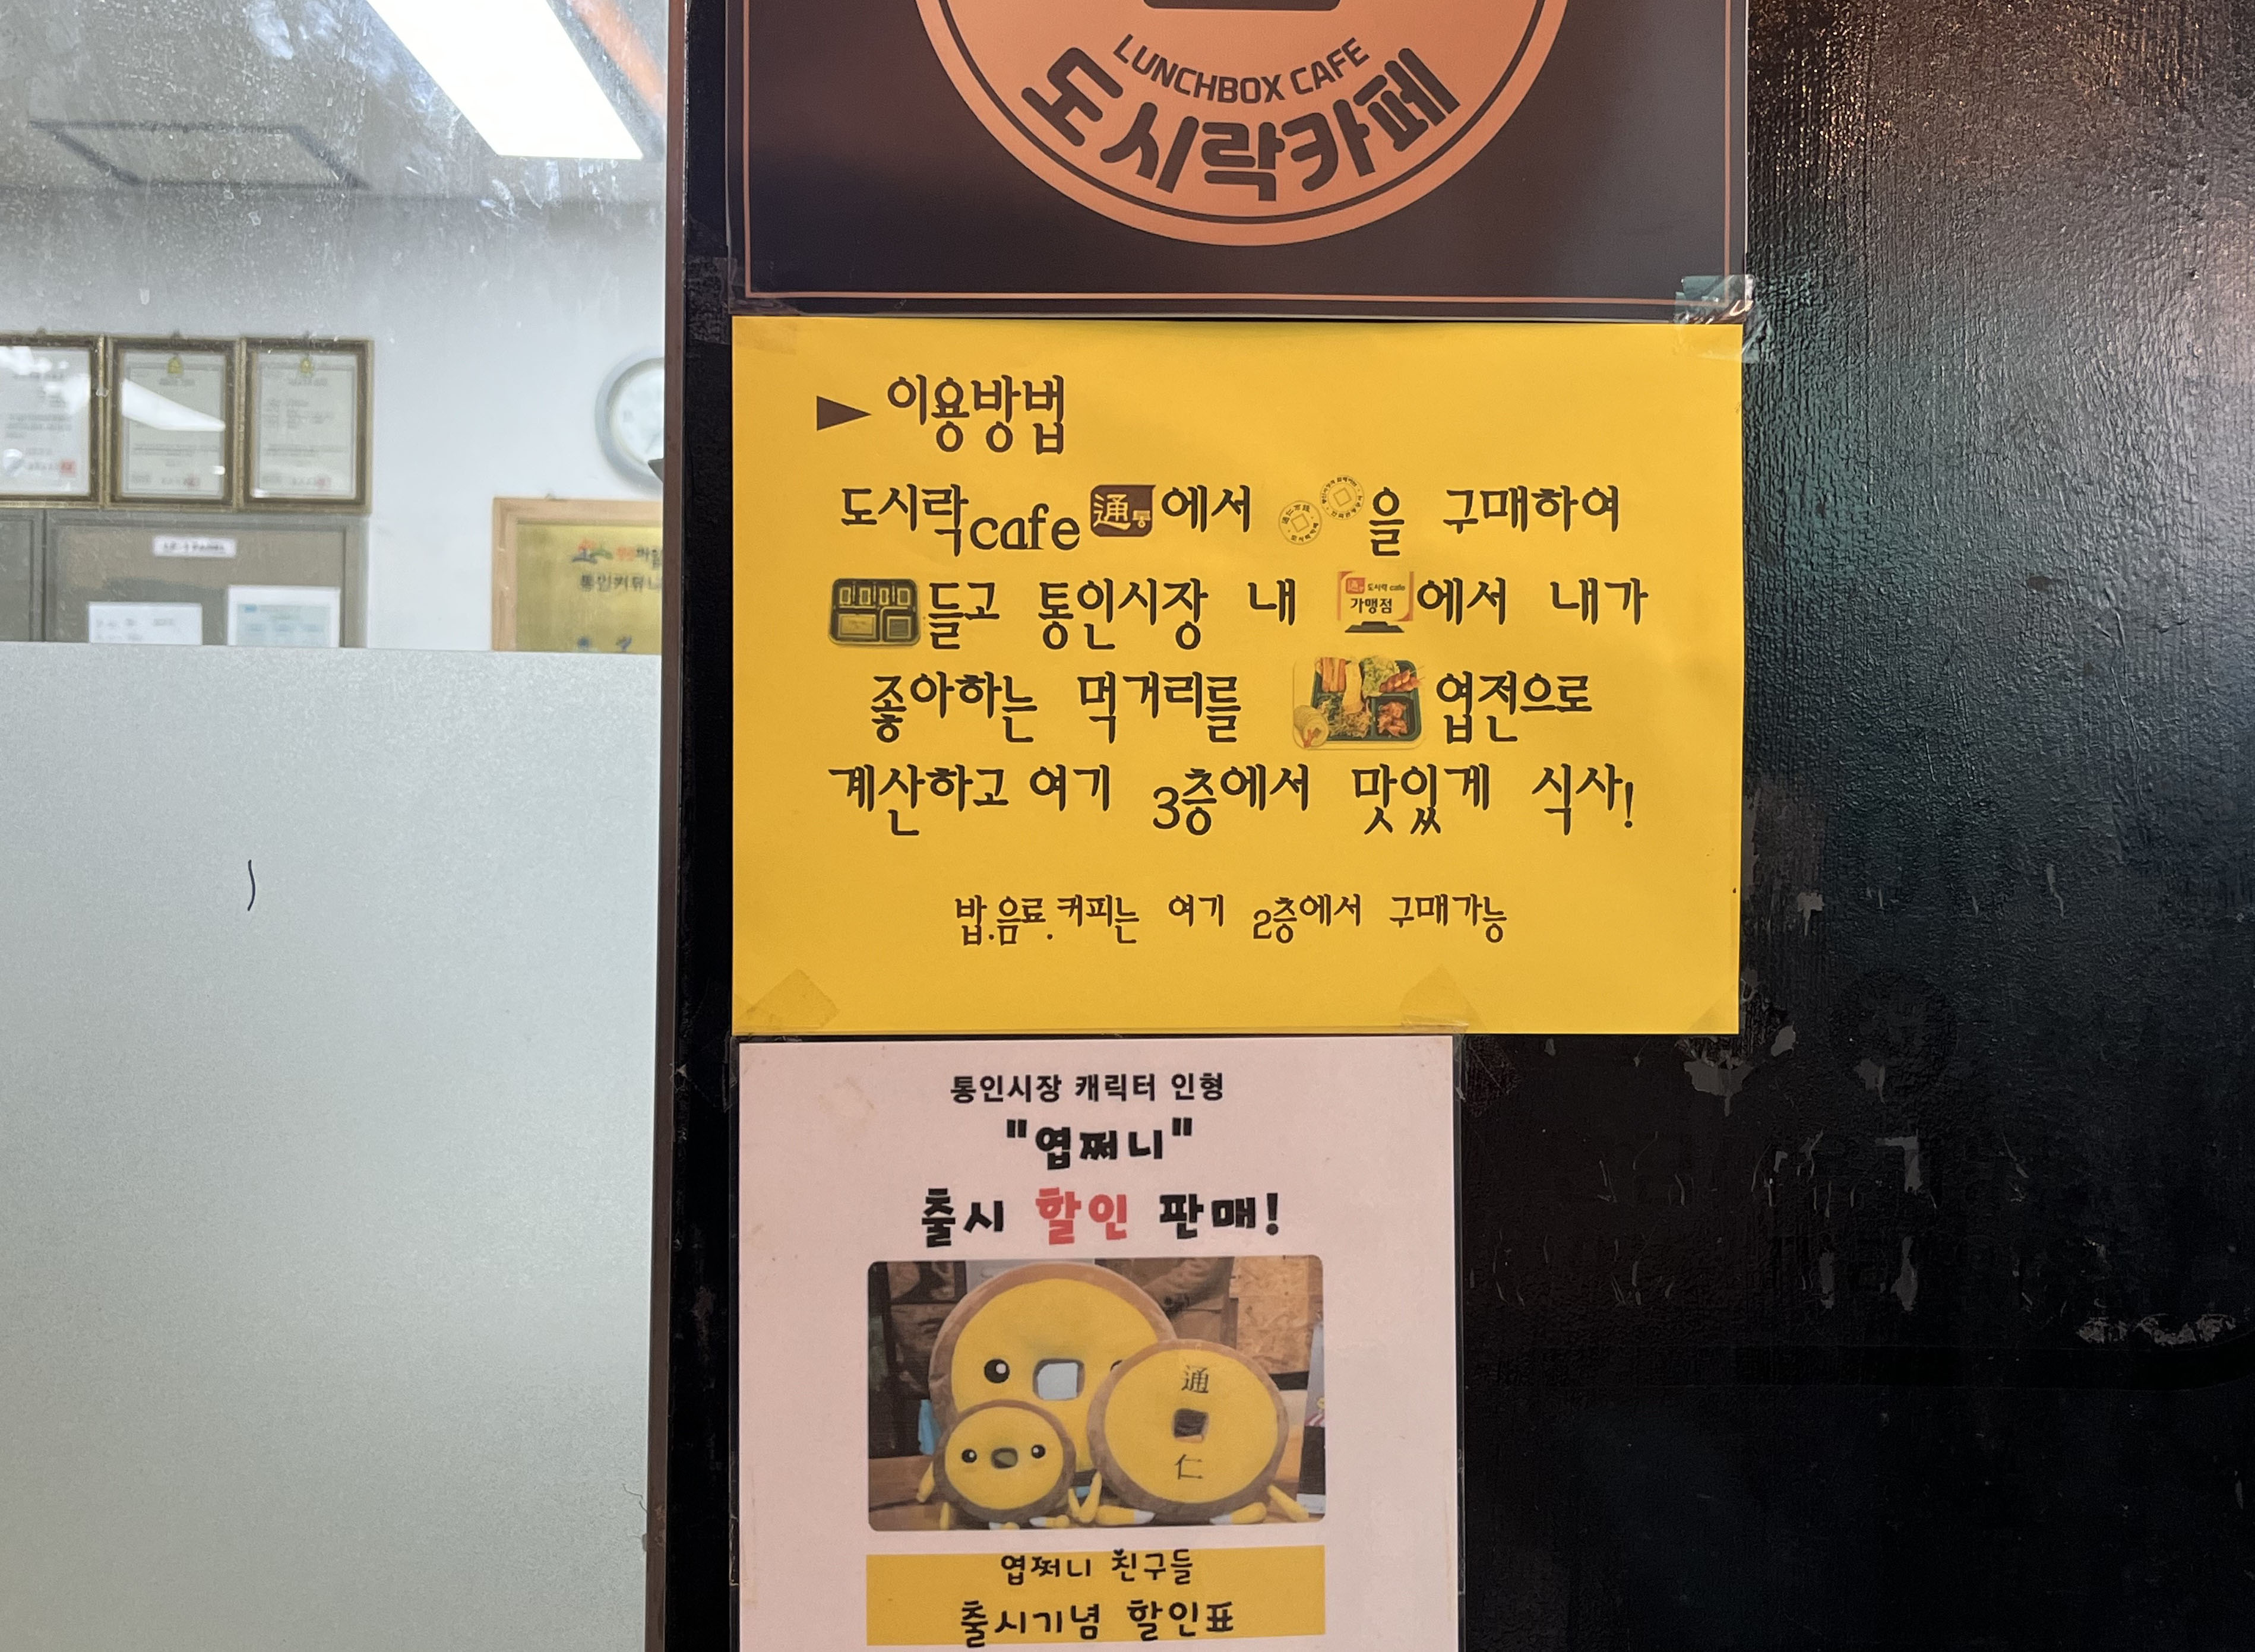 LUNCHBOX CAFE
도시락카페
▶ 이용방법
도시락cafe 通통 에서 을 구매하여
들고 통인시장 내 도시락 cafe 가맹점 에서 내가
좋아하는 먹거리를 엽전으로
계산하고 여기 3층에서 맛있게 식사!
밥.음료.커피는 여기 2층에서 구매가능
통인시장 캐릭터 인형
"엽쩌니"
출시 할인 판매!
通
仁
엽쩌니 친구들
출시기념 할인표